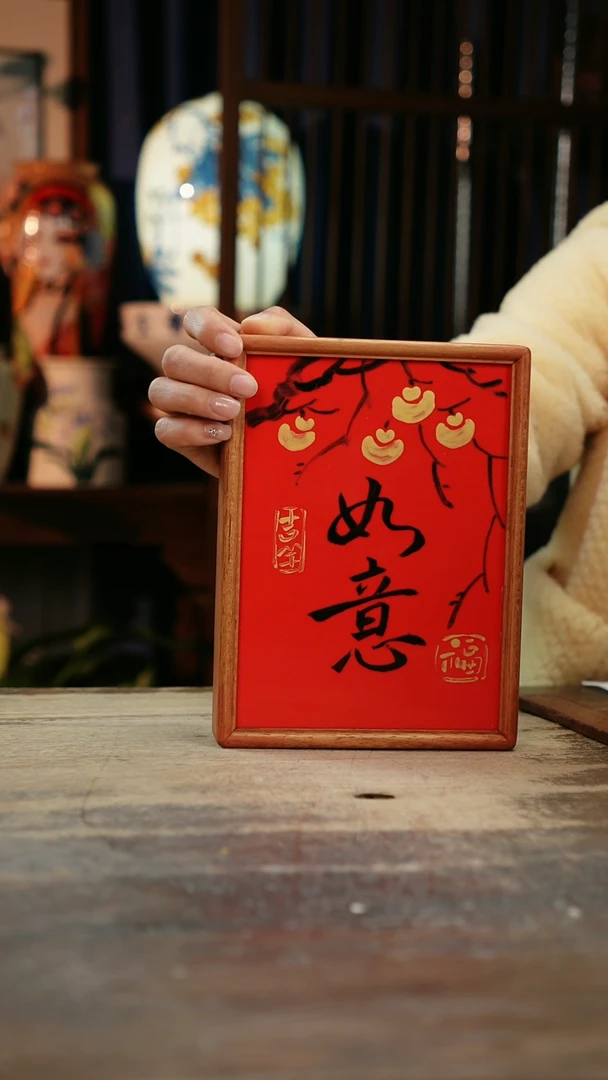 如
意
吉
福